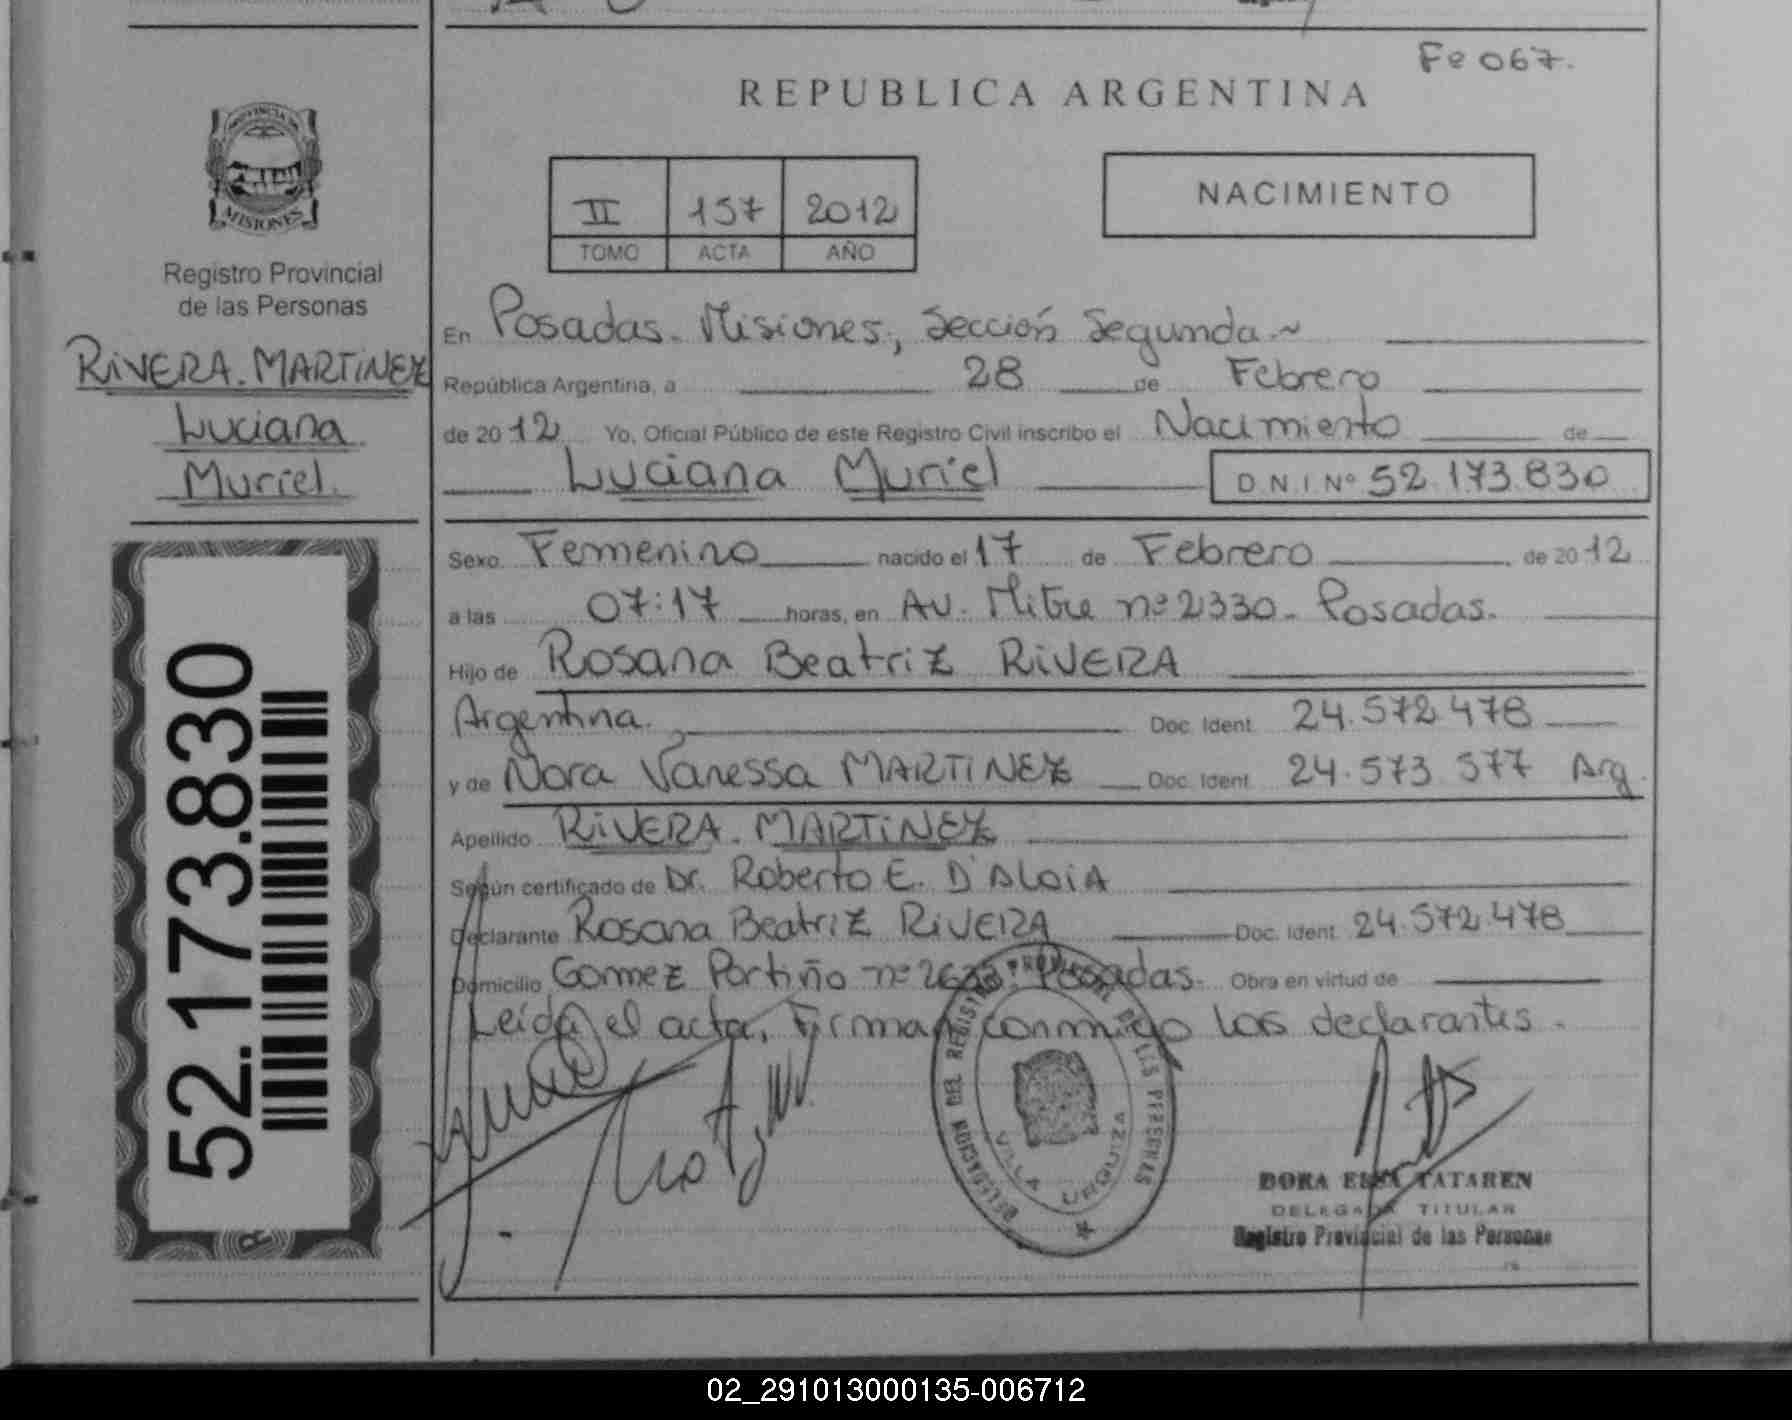 Fº 067.
REPUBLICA ARGENTINA
PROVINCIA DE
MISIONES
Registro Provincial
de las Personas
RIVERA. MARTINEZ
Luciana
Muriel.
52.173.830
II 157 2012
TOMO ACTA AÑO
NACIMIENTO
En Posadas. Misiones, Sección Segunda.~
República Argentina, a 28 de Febrero
de 2012 Yo, Oficial Público de este Registro Civil inscribo el Nacimiento de
Luciana Muriel D N I Nº 52.173.830
Sexo Femenino nacido el 17 de Febrero de 2012
a las 07:17 horas, en Av. Mitre nº 2330. Posadas.
Hijo de Rosana Beatriz RIVERA
Argentina. Doc. Ident. 24.572.478
y de Nora Vanessa MARTINEZ Doc. Ident. 24.573.577 Arg.
Apellido RIVERA. MARTINEZ
Según certificado de Dr. Roberto E. D'ALOIA
Declarante Rosana Beatriz RIVERA Doc. Ident. 24.572.478
Domicilio Gomez Portiño nº Posadas. Obra en virtud de
Leida el acta, Firman conmigo las declarantes.
DELEGACION DEL REGISTRO PROVINCIAL DE LAS PERSONAS
VILLA URQUIZA
DORA ELSA TATAREN
DELEGADA TITULAR
Registro Provincial de las Personas
02_291013000135-006712